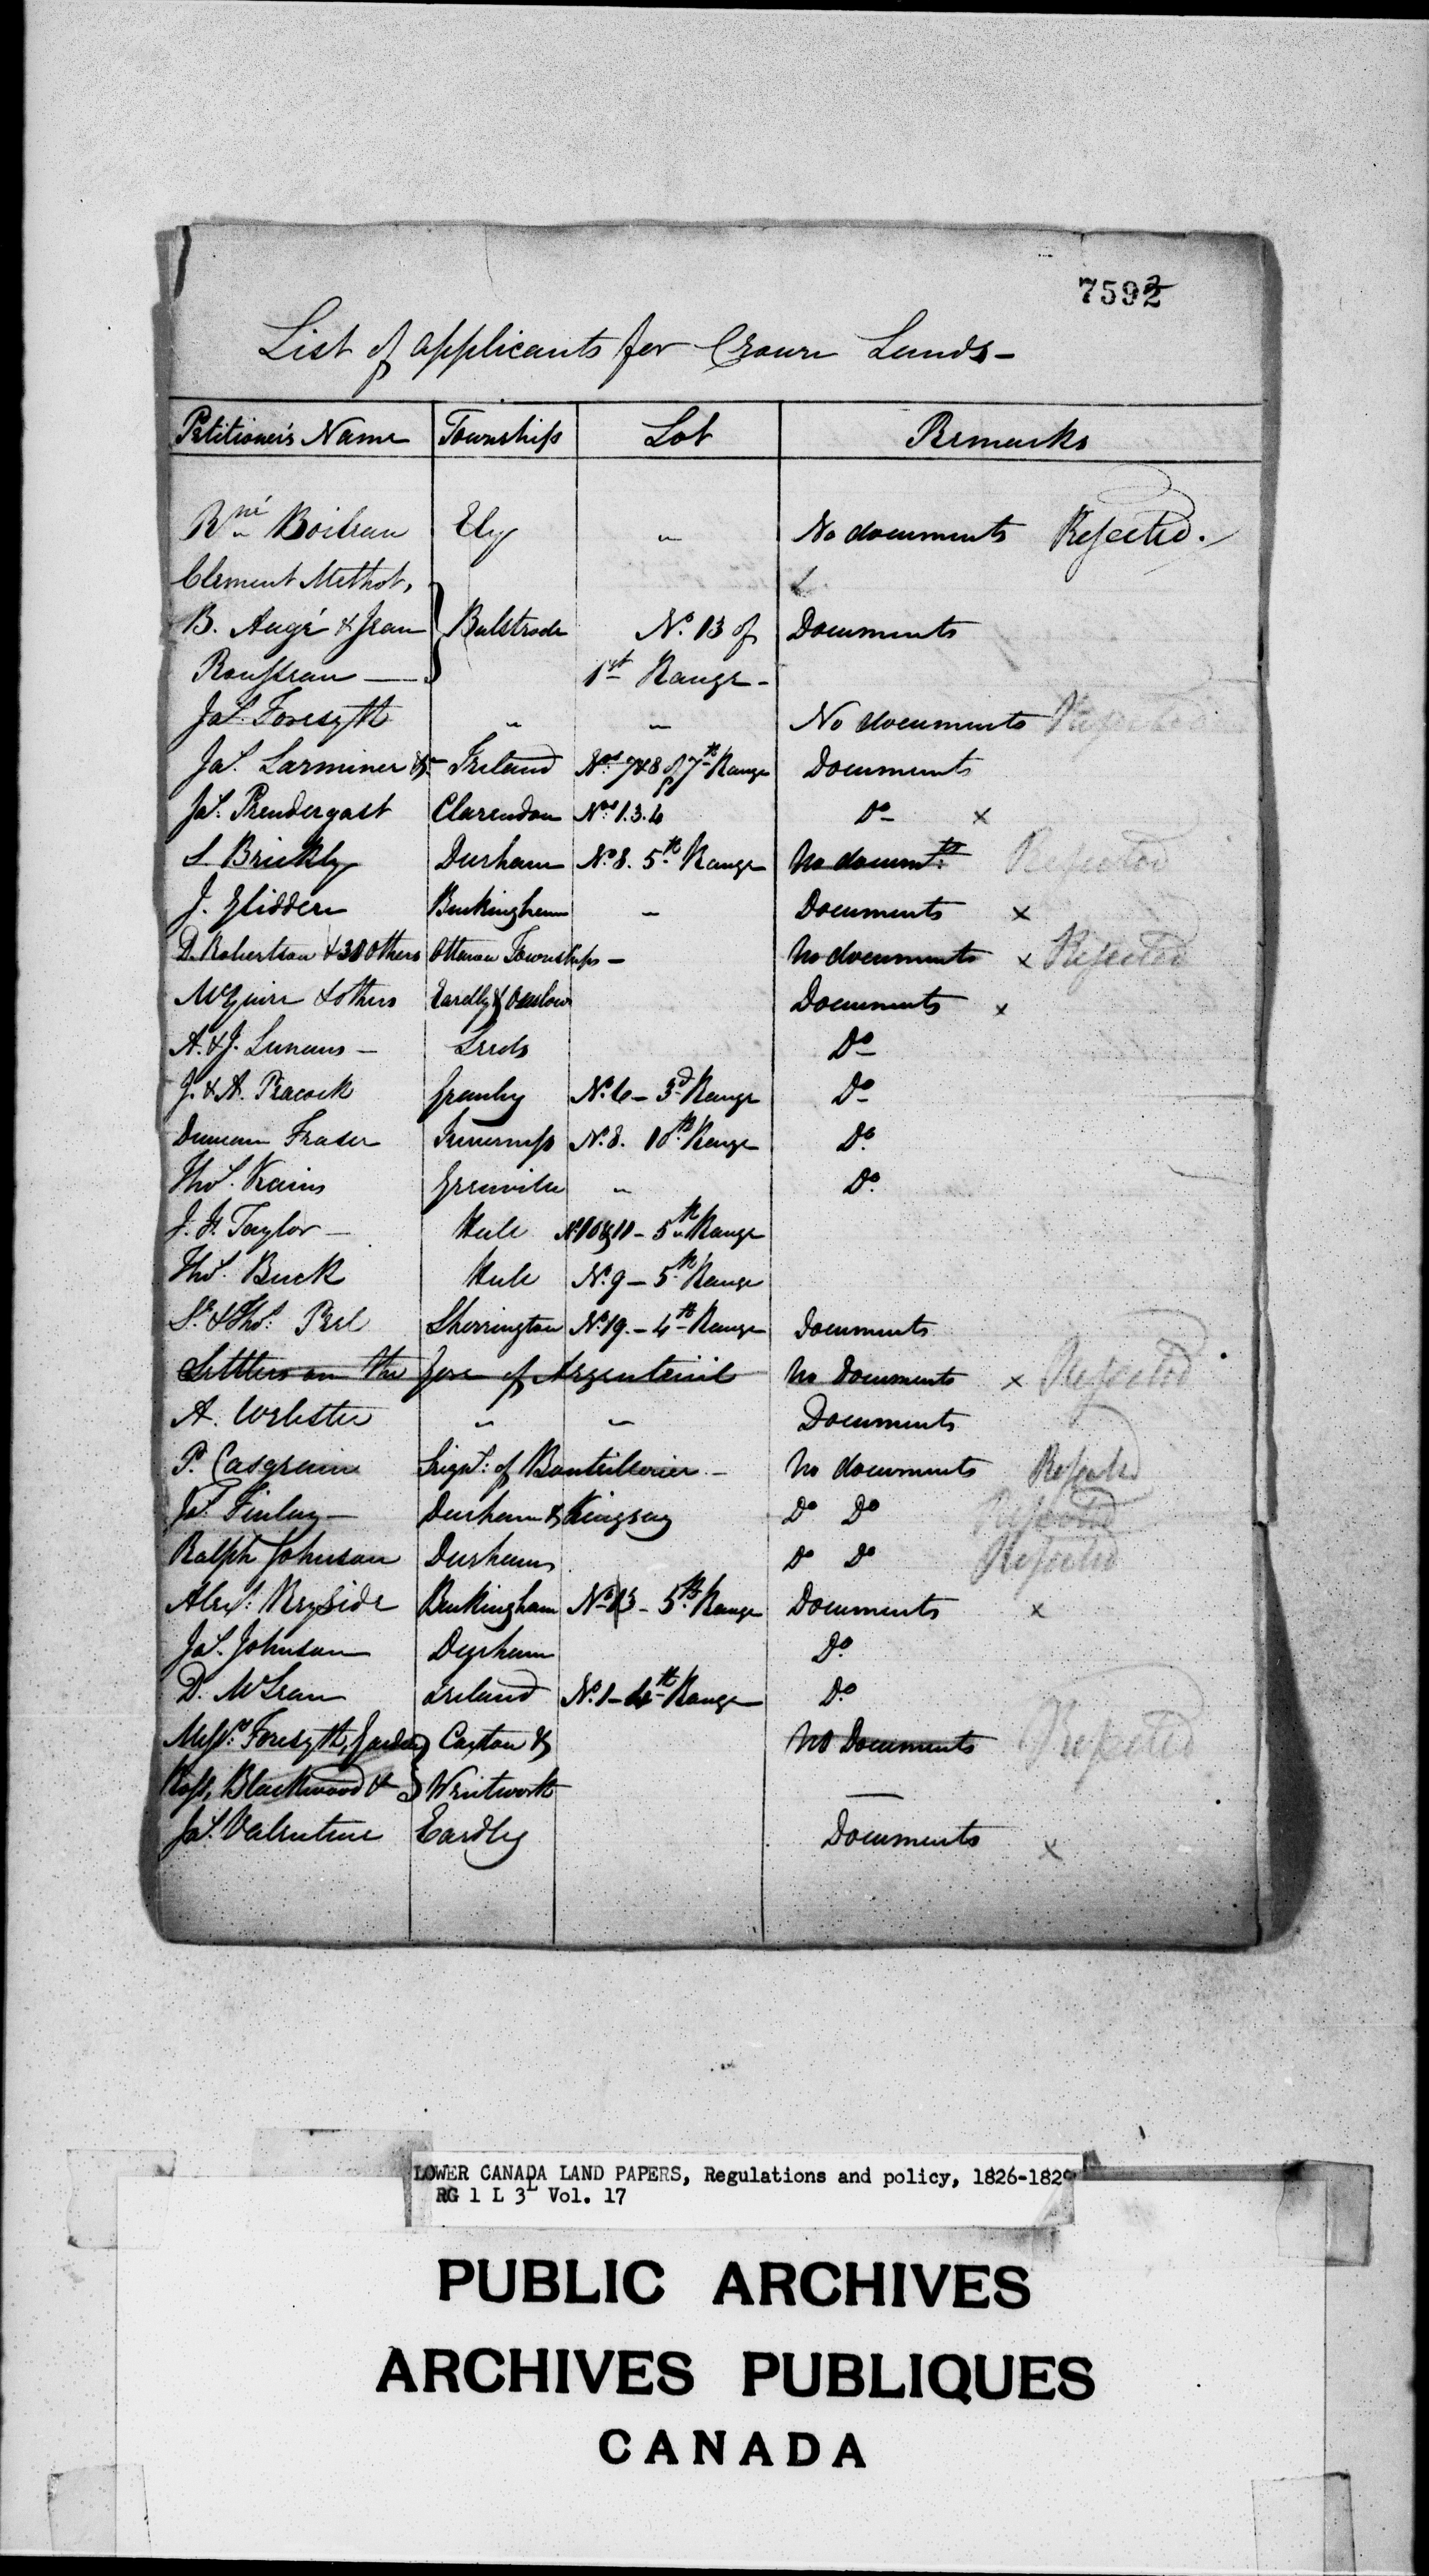 7592
List of applicants for Crown Lands -
Petitioner's Name Township Lot Remarks
Rné Boileau Ely " No documents Rejected.
Clement Methot,
B. Augé & Jean } Bulstrode No. 13 of Documents
Rousseau — 1st Range -
Jas. Forsyth " " No documents Rejected
Jas. Larminer & Ireland Nos. 7&8 of 7th Range Documents
Jas. Prendergast Clarendon Nos. 1.3.4 Do x
S Brickly Durham No. 8. 5th Range No documts. Rejected
J. Glidden Buckingham " Documents x
D. Robertson & 30 Others Ottawa Townships - No documents x Rejected
McGuire & others Eardly & Onslow Documents x
A. & J. Lunans - Leeds Do
J. & A. Peacock Granby No. 6 - 3d Range Do
Duncan Fraser Inverness No. 8. 10th Range Do.
Thos. Kains Grenville " Do.
J. F. Taylor - Hull No. 10 & 11 - 5th Range
Thos. Buck Hull No. 9 - 5th Range
& Thos. Peel Sherrington No. 19. - 4th Range Documents
Settlers on the Gore of Argenteuil No Documents x Rejected
A. Webster " " Documents
P. Casgrain Seigny. of Bouteillerie - No documents Rejected
Js. Finlay - Durham & Kingsey Do Do Rejected
Ralph Johnson Durham Do Do Rejected
Alexr. Bryside Buckingham No. 13 - 5th Range Documents x
Jas. Johnson Durham Do.
D. McLean Ireland No. 1 - 4th Range Do.
Messrs. Forsyth, } Caxton & No Documents Rejected
Ross, Blackwood & } Wentworth —
Jas. Valentine Eardley Documents x
LOWER CANADA LAND PAPERS, Regulations and policy, 1826-1829
RG 1 L 3L Vol. 17
PUBLIC ARCHIVES
ARCHIVES PUBLIQUES
CANADA